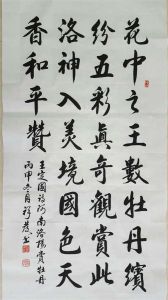 花中之王數牡丹繽
紛五彩真奇觀賞此
洛神入美境國色天
香和平贊
王定國詩河南洛陽賞牡丹
丙申冬月